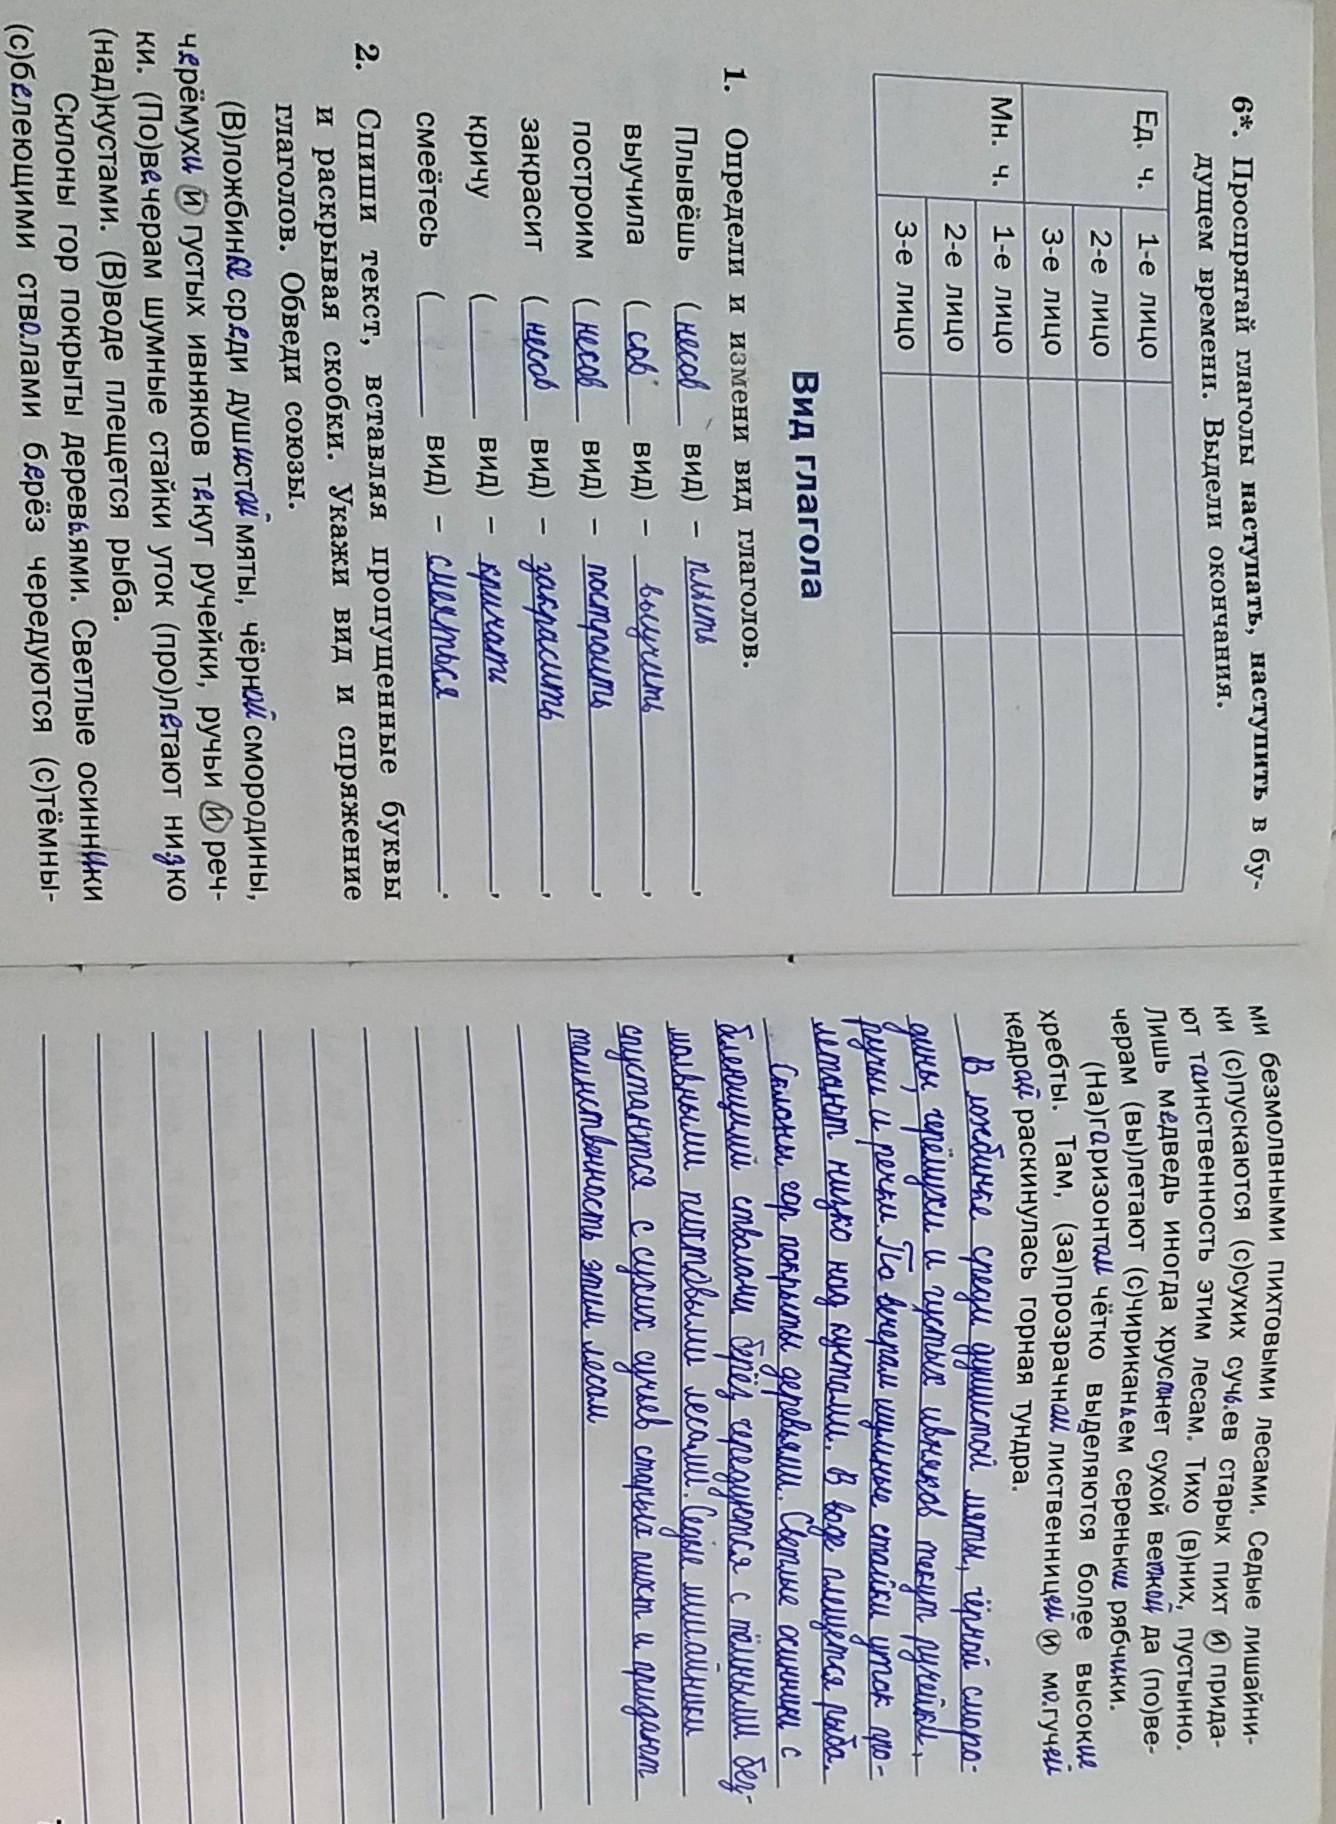 6*. Проспрягай глаголы наступать, наступить в бу-
дущем времени. Выдели окончания.
Ед. ч. 1-е лицо
2-е лицо
3-е лицо
Мн. ч. 1-е лицо
2-е лицо
3-е лицо
Вид глагола
1. Определи и измени вид глаголов.
Плывёшь (несов вид) – плыть,
выучила (сов вид) – выучить,
построим (несов вид) – построить,
закрасит (несов вид) – закрасить,
кричу ( вид) – кричать,
смеётесь ( вид) – смеяться.
2. Спиши текст, вставляя пропущенные буквы
и раскрывая скобки. Укажи вид и спряжение
глаголов. Обведи союзы.
(В)ложбинке среди душистой мяты, чёрной смородины,
черёмухи и густых ивняков текут ручейки, ручьи и реч-
ки. (По)вечерам шумные стайки уток (про)летают низко
(над)кустами. (В)воде плещется рыба.
Склоны гор покрыты деревьями. Светлые осинники
(с)белеющими стволами берёз чередуются (с)тёмны-
ми безмолвными пихтовыми лесами. Седые лишайни-
ки (с)пускаются (с)сухих сучьев старых пихт и прида-
ют таинственность этим лесам. Тихо (в)них, пустынно.
Лишь медведь иногда хрустнет сухой веткой да (по)ве-
черам (вы)летают (с)чириканьем серенькие рябчики.
(На)гаризонтаи чётко выделяются более высокие
хребты. Там, (за)прозрачнаи лиственницеи и могучей
кедрай раскинулась горная тундра.
В ложбинке среди душистой мяты, чёрной сморо-
дины, черёмухи и густых ивняков текут ручейки,
ручьи и речки. По вечерам шумные стайки уток про-
летают низко над кустами. В воде плещется рыба.
Склоны гор покрыты деревьями. Светлые осинники с
белеющий стволами берёз чередуются с тёмными без-
молвными пихтовыми лесами. Седые лишайники
спустаются с сухих сучьев старых пихт и придают
таинственность этим лесам